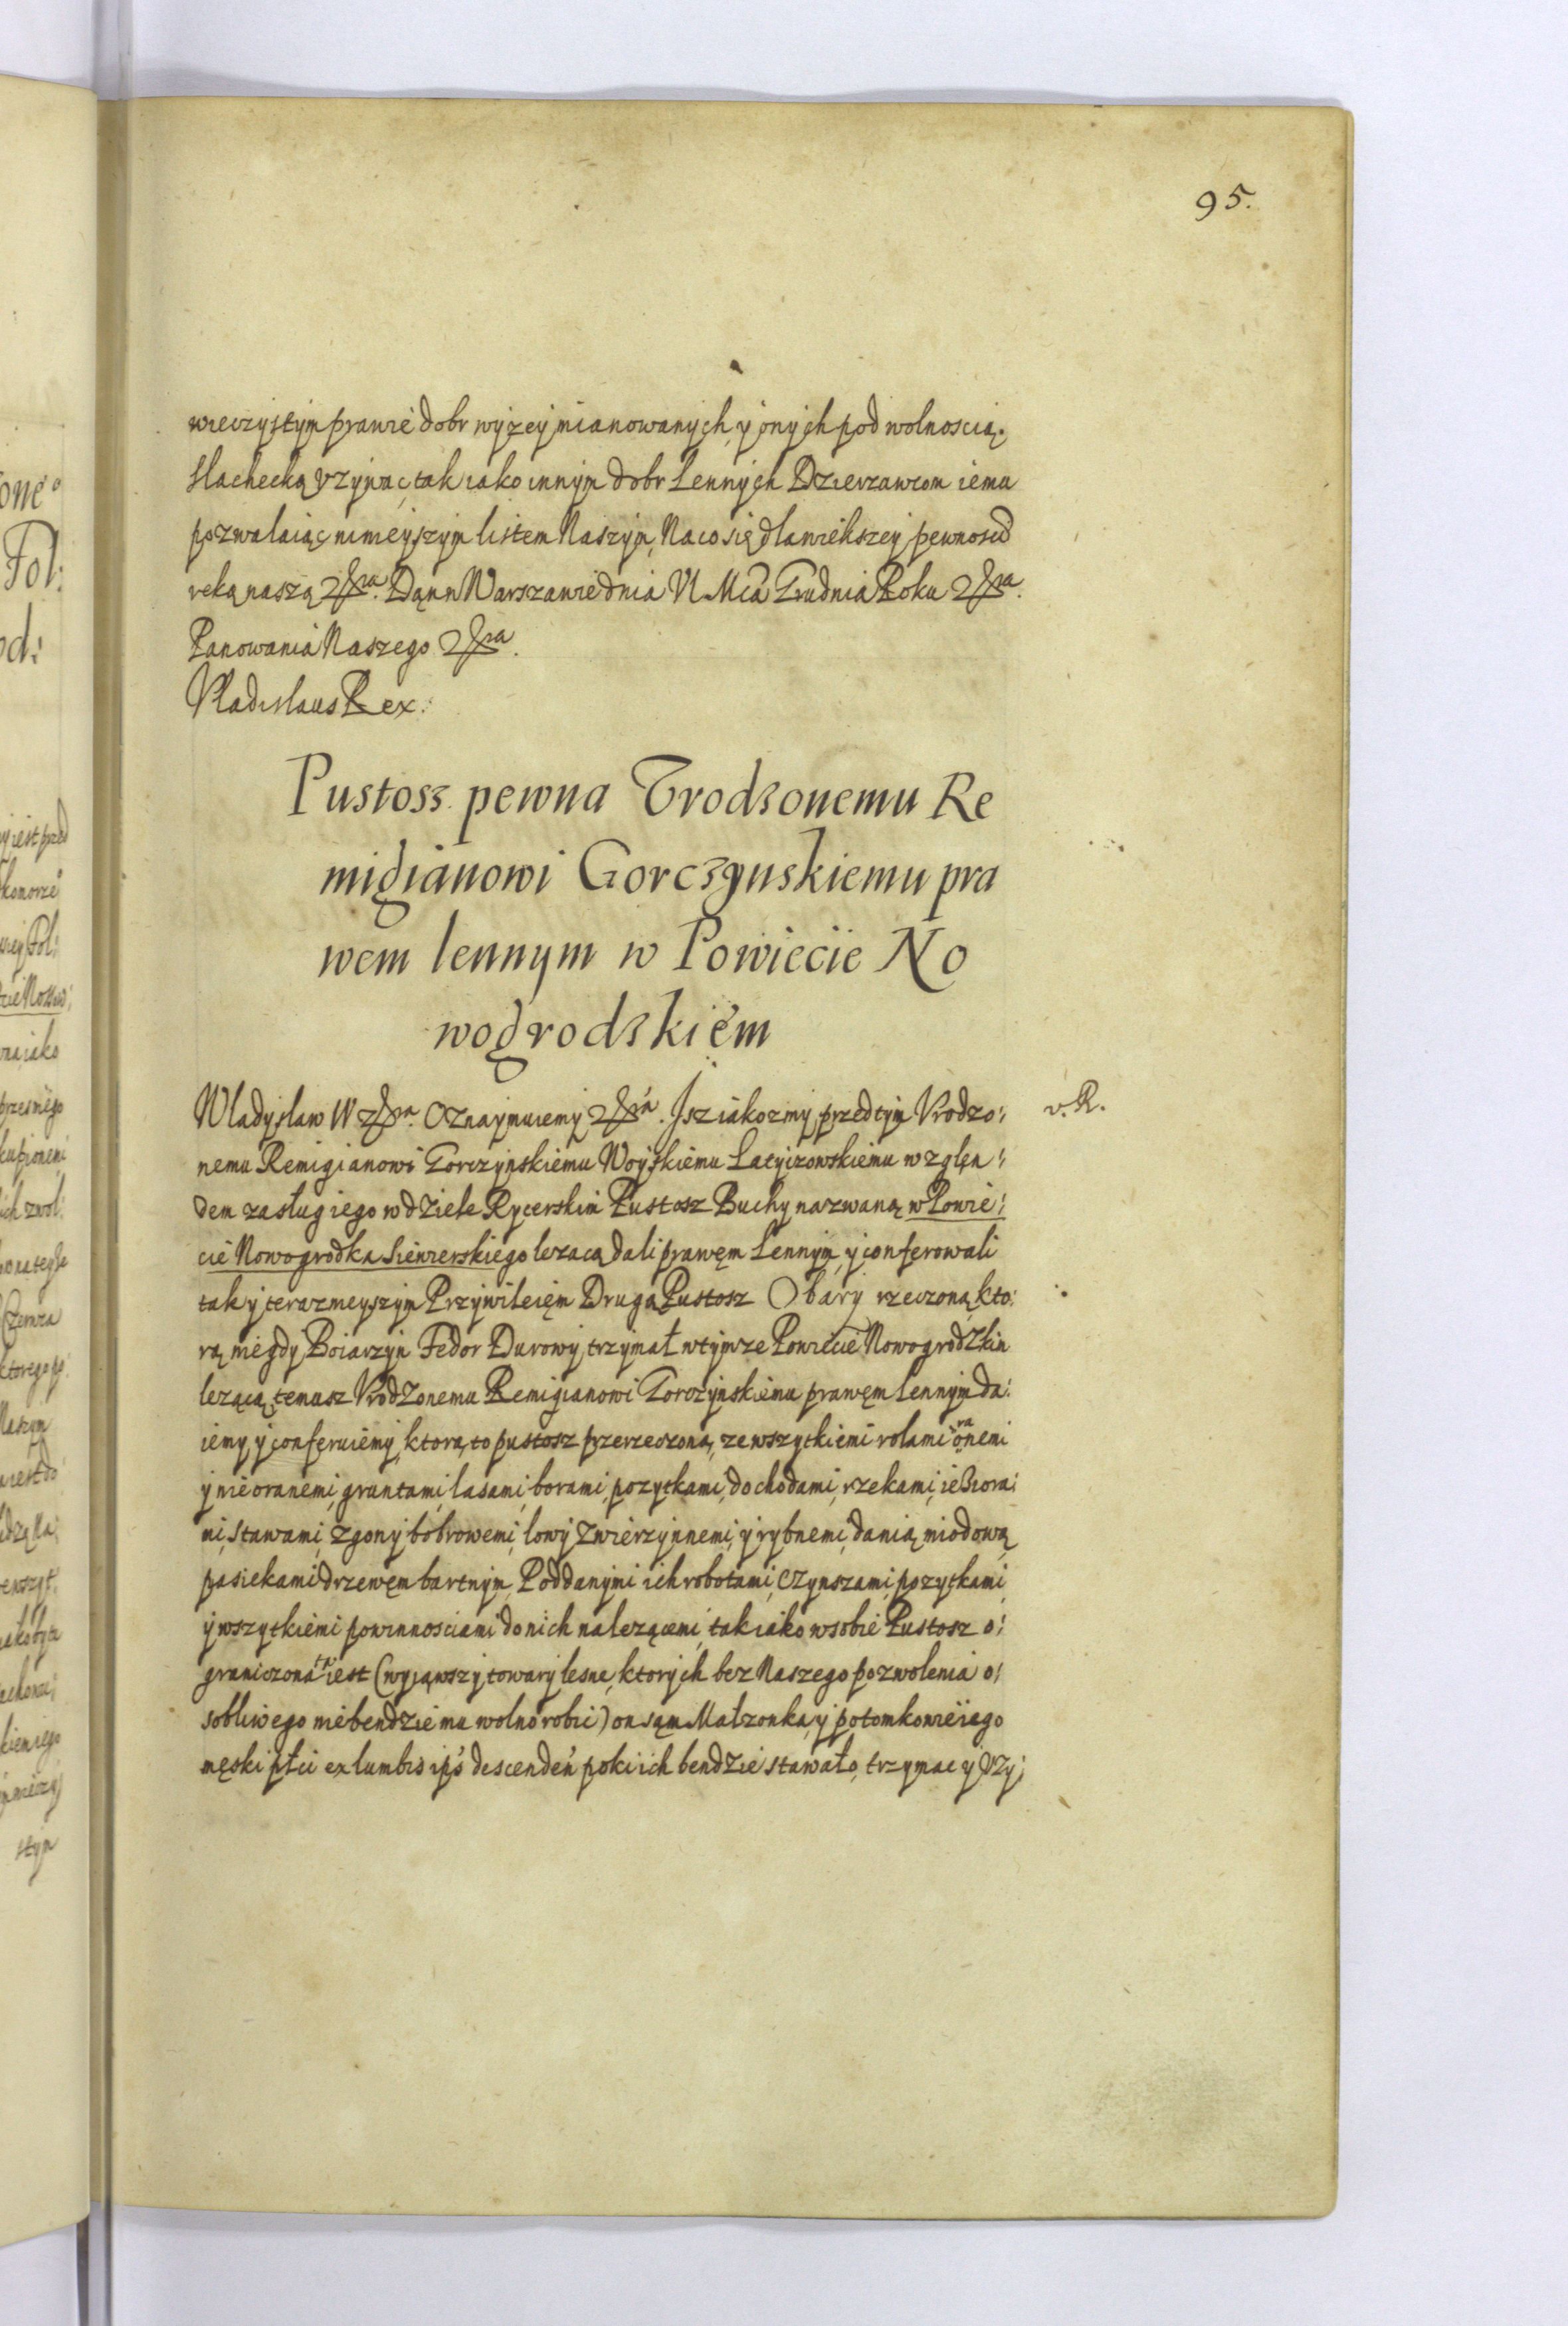 95.
wieczystym prawie dobr wyzey mianowanych, y onych pod wolnoscią
slachecką vzywac, tak iako innym dobr Lennych Dzierzawcom iemu
pozwalaiąc ninieyszym listem Naszym, Na co się dla wiekszey pewnosci
reką naszą &ra. Dan w Warszawie dnia VI Mca Grudnia Roku &ra.
Panowania Naszego &ra.
Vladislaus Rex.
Pustosz pewna Vrodzonemu Re
migianowi Gorczynskiemu pra
wem lennym w Powiecie No
wogrodzkiem
Wladyslaw IV &ra. Oznaymuiemy &ra. Isz iakozmy przed tym Vrodzo:
v. R.
nemu Remigianowi Gorczynskiemu Woyskiemu Latyczowskiemu wzglen:
dem zasług iego w dziele Rycerskim Pustosz Buchy nazwaną w Powie:
cie Nowogrodka Siewierskiego lezacą dali prawem Lennym, y conferowali
tak y terazneyszym Przywileiem Drugą Pustosz Obary rzeczoną kto:
rą niegdy Boiarzyn Fedor Durowy trzymał w tymze Powiecie Nowogrodzkim
lezącą, temusz Vrodzonemu Remigianowi Gorczynskiemu prawem Lennym da:
iemy y conferuiemy, ktorą to pustosz przerzeczoną, ze wszytkiemi rolami oranemi
y nieoranemi, gruntami, lasami, borami, pozytkami, dochodami, rzekami, ieziora:
mi, stawami, zgony bobrowemi, lowy zwierzynnemi, y rybnemi, danią miodową
pasiekami drzewem bartnym, Poddanymi ich robotami, czynszami, pozytkami
y wszytkiemi powinnosciami do nich nalezącemi, tak iako w sobie Pustosz o:
graniczona ta iest (wyiąwszy towary lesne, ktorych bez Naszego pozwolenia o:
sobliwego nie bendzie mu wolno robic) on sam Małzonka, y potomkowie iego
męski płci ex lumbis ips descenden poki ich bendzie stawało, trzymac y vzy: